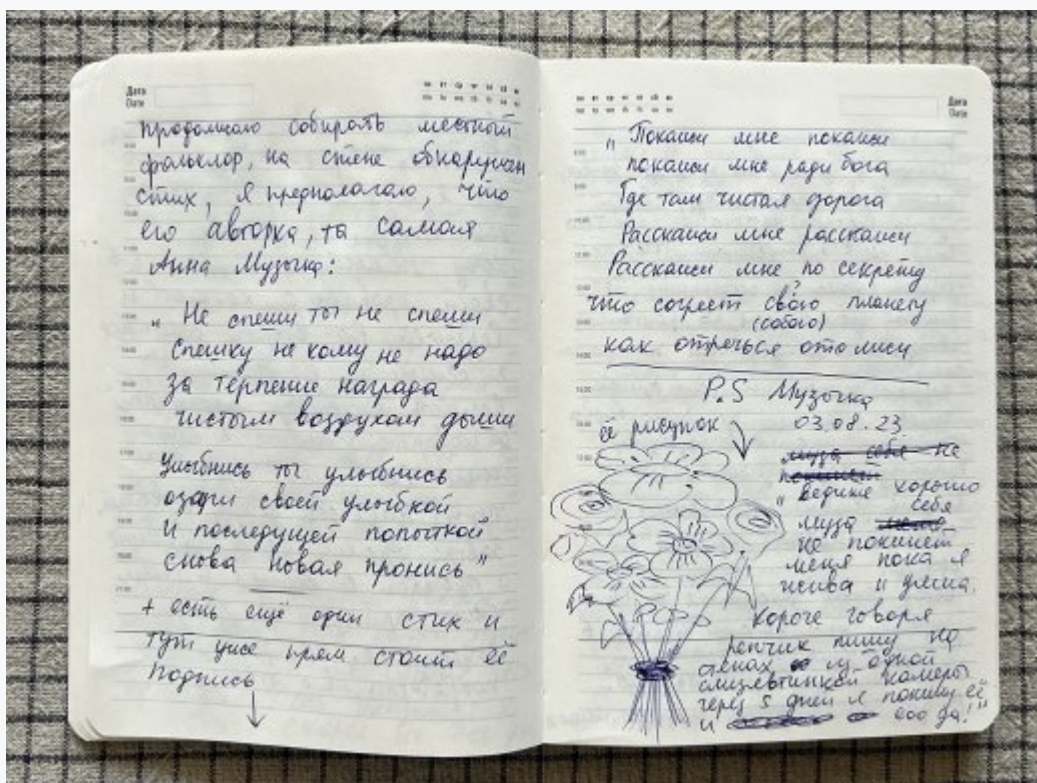 Дата
Date
продолжаю собирать местный
фольклор, на стене обнаружен
стих, я предполагаю, что
его авторка, та самая
Анна Музычка:
„ Не спеши ты не спеши
спешку не кому не надо
за терпение награда
чистым воздухом дыши
Улыбнись ты улыбнись
озари своей улыбкой
И последущей попыткой
снова новая пропись"
+ есть ещё один стих и
тут уже прям стоит её
подпись
Дата
Date
„ Покажи мне покажи
покажи мне ради бога
Где там чистая дорога
Расскажи мне расскажи
Расскажи мне по секрету
что согреет свою планету
(собою)
как отречься ото лжи
P.S Музычка
03.08.23
её рисунок
муза себя не
покинет
"ведите хорошо
себя
муза меня
не покинет
меня пока я
жива и умна.
короче говоря
репчик пишу на
стенах из одной
камеры
через 5 дней я покину её
и еоо да!"